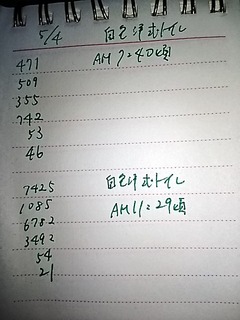 5/4 自宅 トイレ
471 AM 7:40頃
509
355
742
53
46
7425 自宅 トイレ
1085 AM 11:29頃
6782
3492
54
21